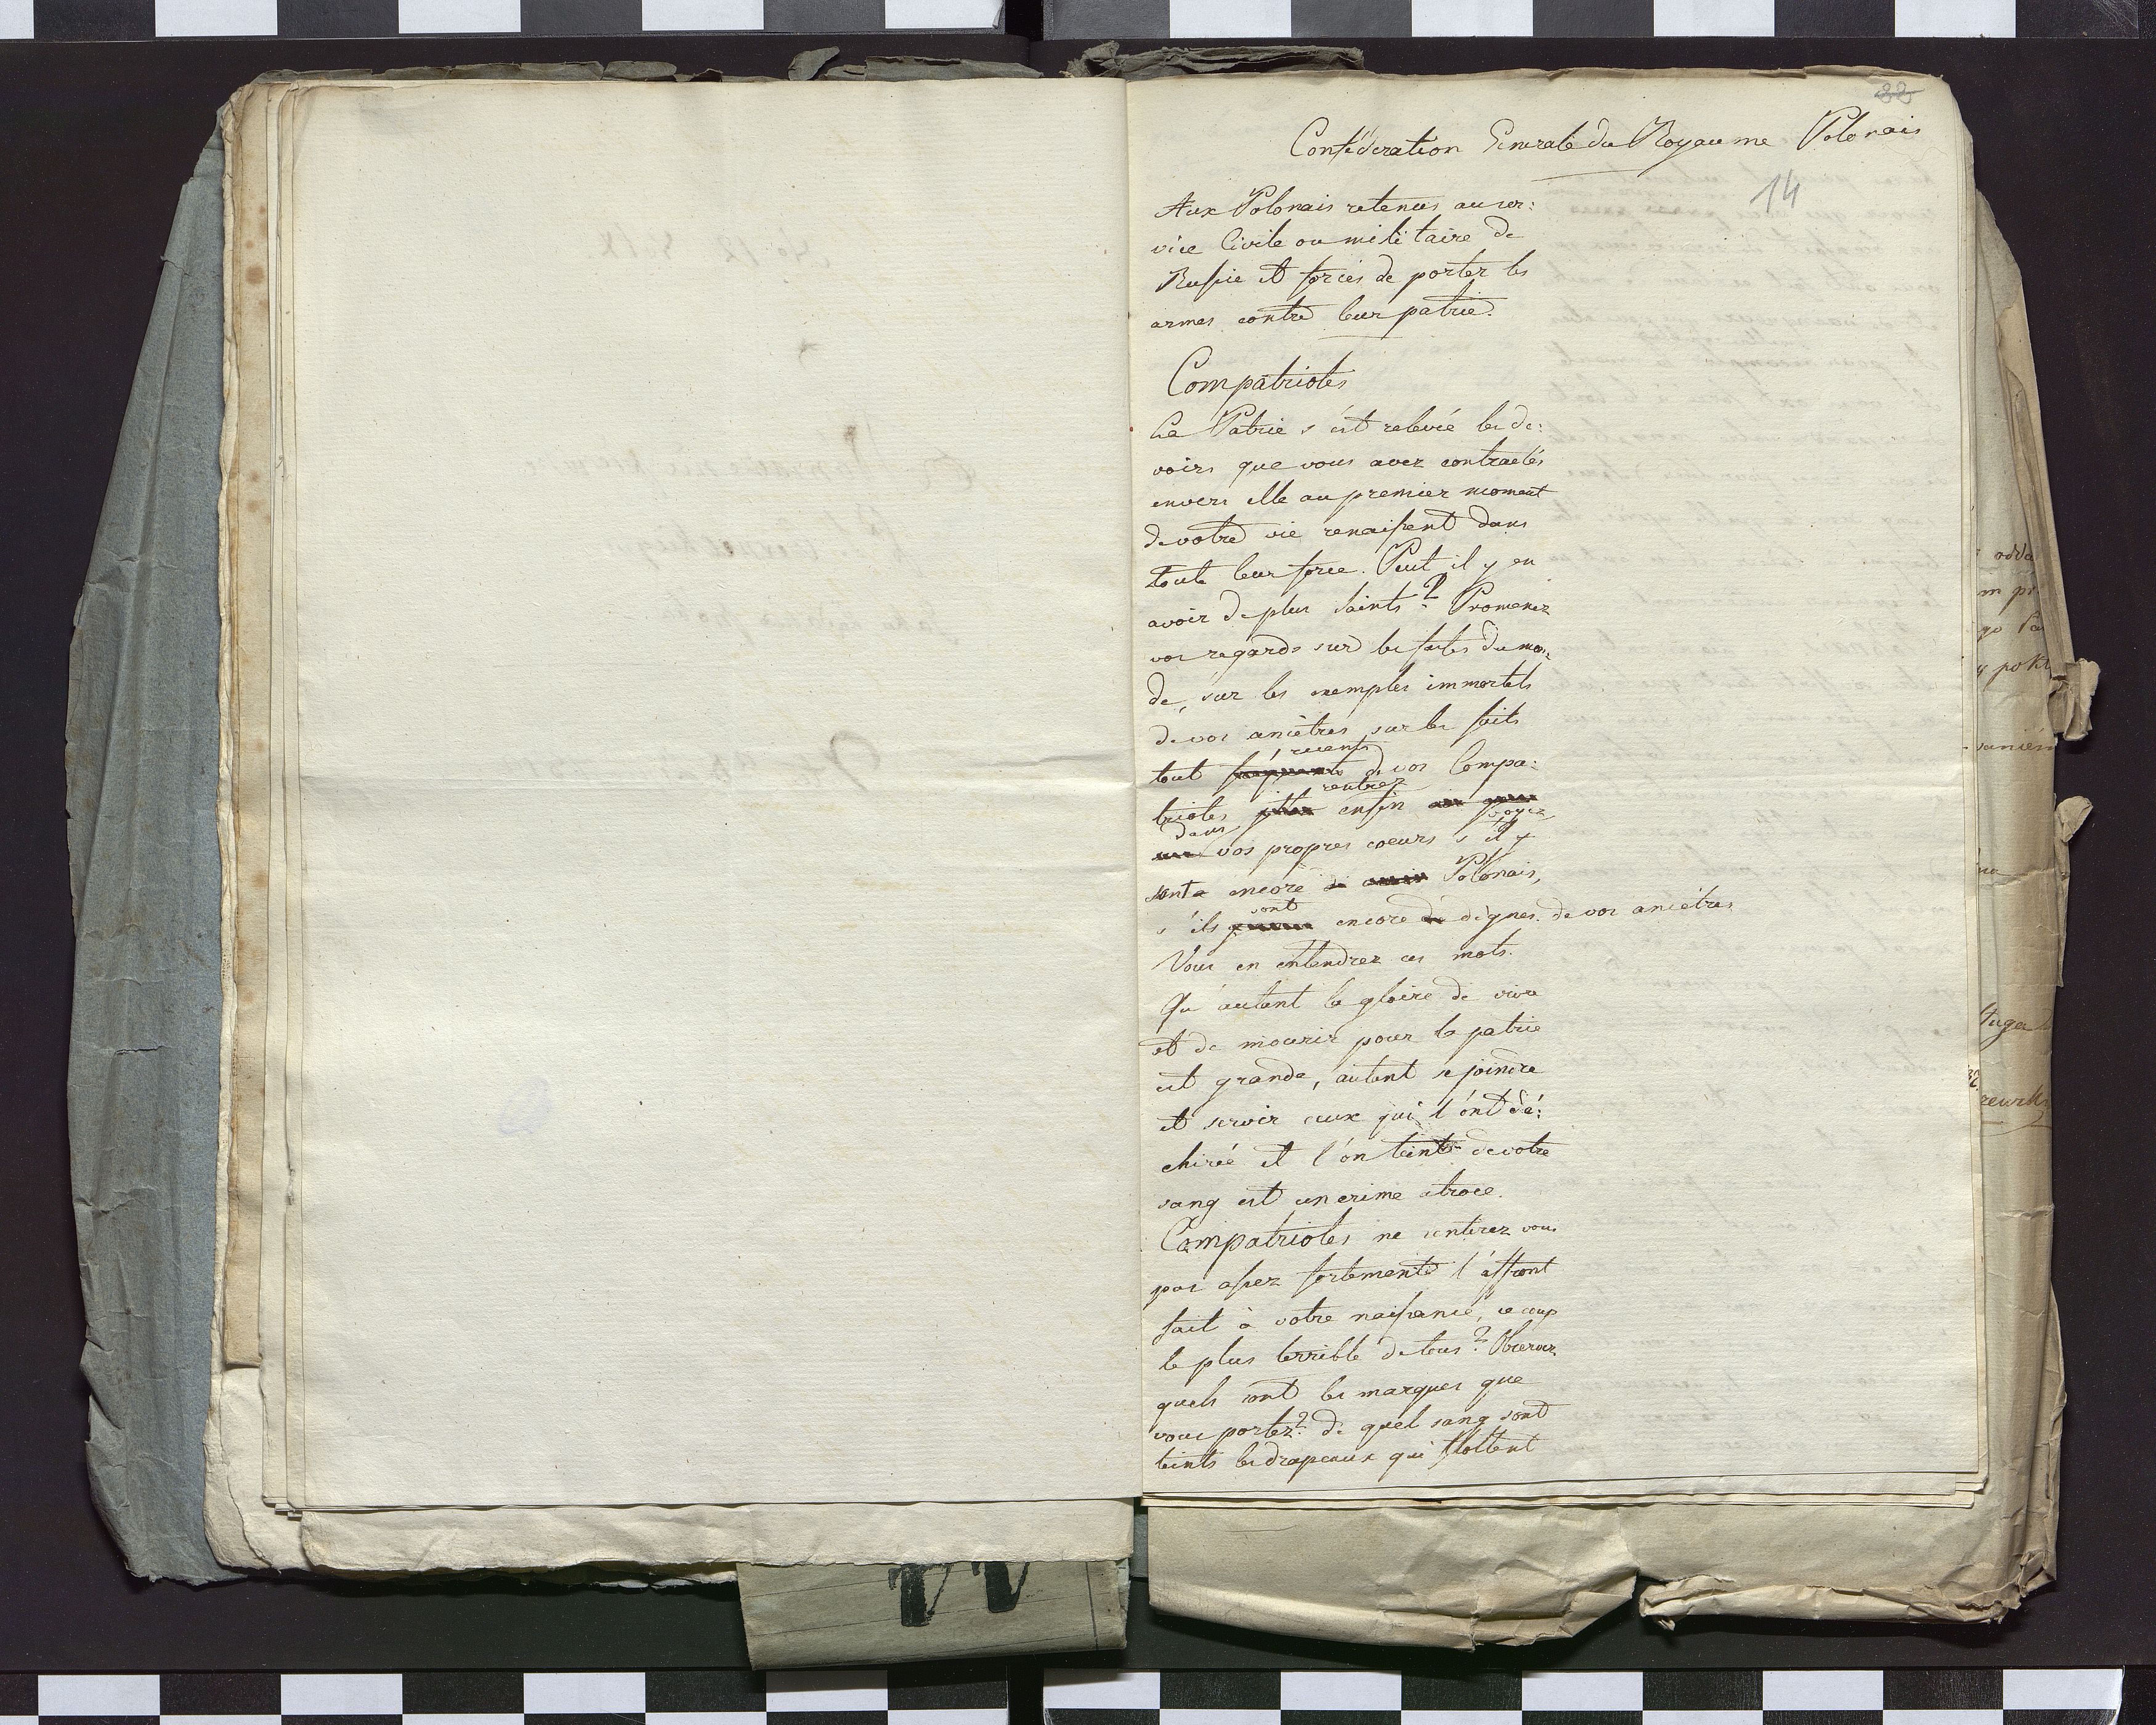 Confédération Generale du Royaume Polonais
14
Aux Polonais retenus au ser:
vice Civile ou militaire de
Russie et forcés de porter les
armes contre leur patrie.
Compatriotes
La Patrie s'ést relevée les de:
voirs que vous avez contractés
envers elle au premier moment
de votre vie renaissent dans
toute leur force. Peut il y en
avoir de plus Saints? Promenez
vos regards sur les fastes du mon:
de, sur les exemples immortels
de vos ancêtres, sur les faits
récents
tout de vos Compa:
rentrez
triotes enfin
dans voyez
vos propres coeurs s'il y
sont encore Polonais,
sont
s'ils encore dignes de vos ancêtres
Vous en entendrez ces mots.
Qu'autant la gloire de vivre
et de mourir pour la patrie
est grande, autant se joindre
et servir ceux qui l'ont dé:
chirée et l'on teint de votre
sang est un crime atroce.
Compatriotes ne sentirez vous
pas assez fortement l'affront
fait à votre naissance, ce coup
le plus terrible de tous? Observez
quels sont les marques que
vous portez? de quel sang sont
teints les drapeaux qui flottent